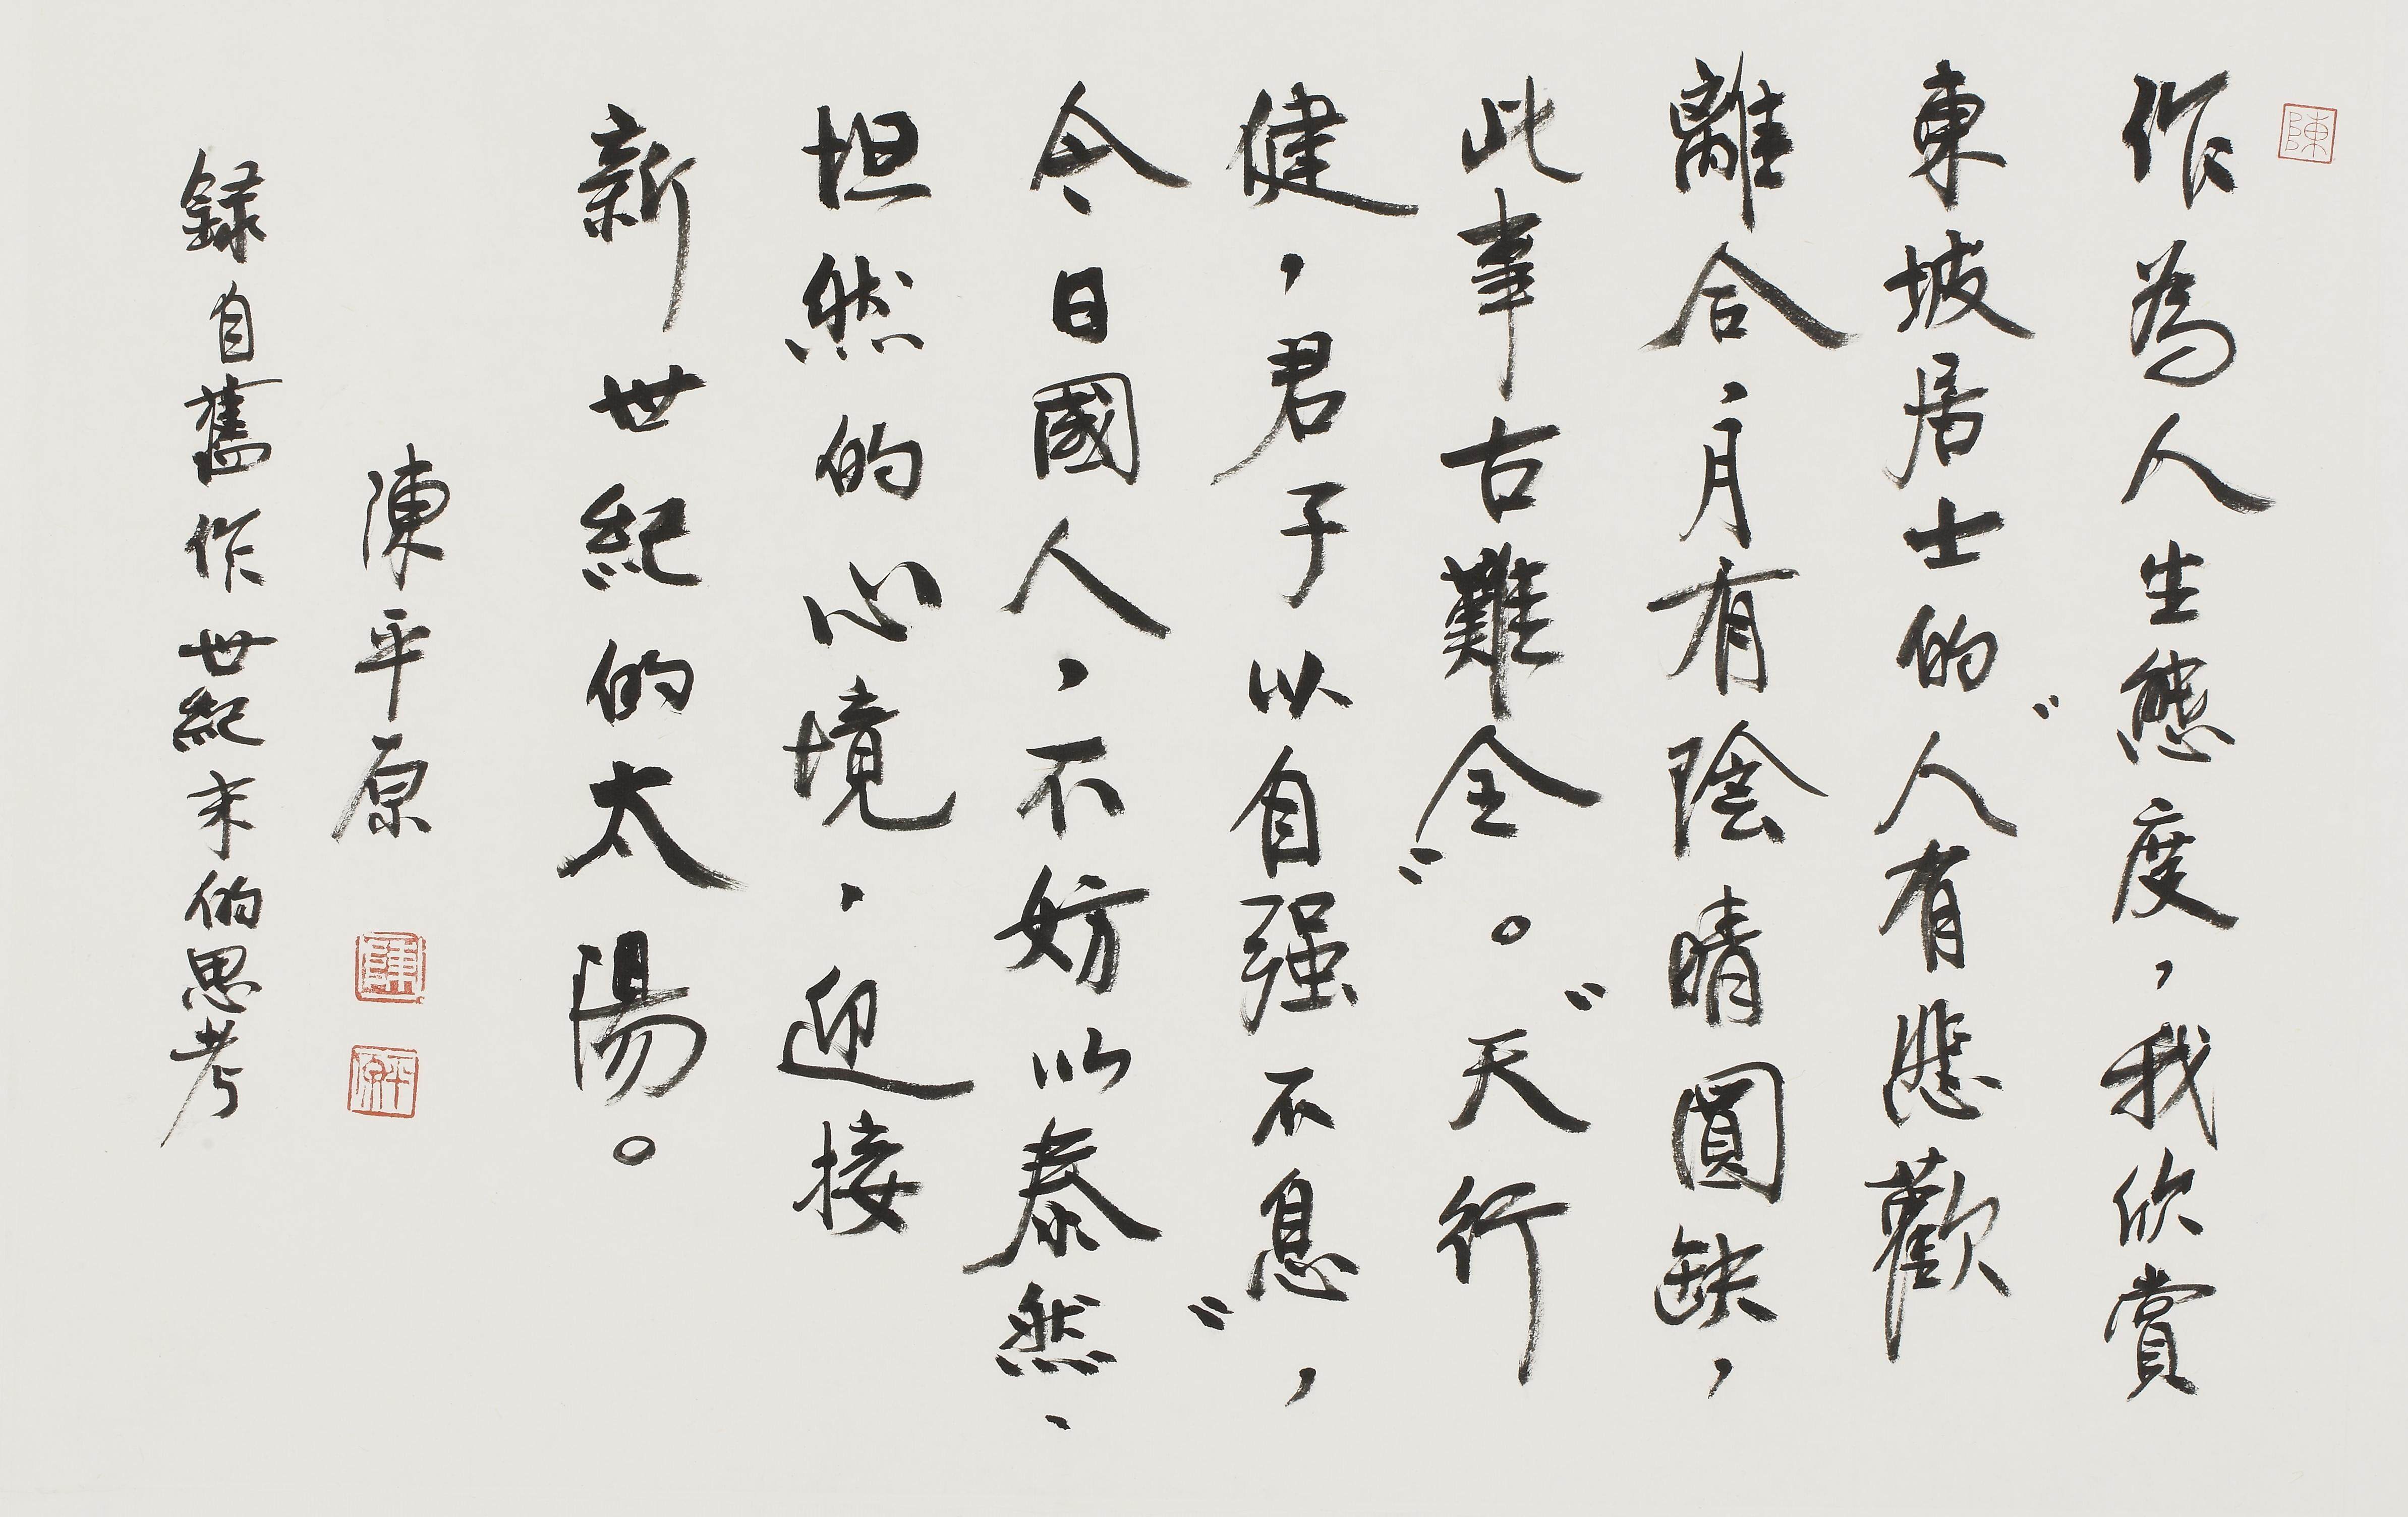 作為人生態度，我欣賞
東坡居士的“人有悲歡
離合，月有陰晴圓缺，
此事古難全”。“天行
健，君子以自强不息”，
今日國人，不妨以泰然、
坦然的心境，迎接
新世紀的太陽。
陳平原
録自舊作世紀末的思考
陳
陳
平原